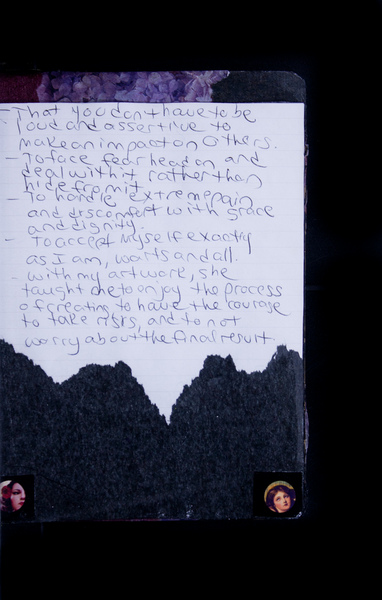 - That you don't have to be
loud and assertive to
make an impact on others.
- To face fear head on and
deal with it rather than
hide from it.
- To handle extreme pain
and discomfort with grace
and dignity.
- To accept myself exactly
as I am, warts and all.
- with my artwork, she
taught me to enjoy the process
of creating to have the courage
to take risks, and to not
worry about the final result.